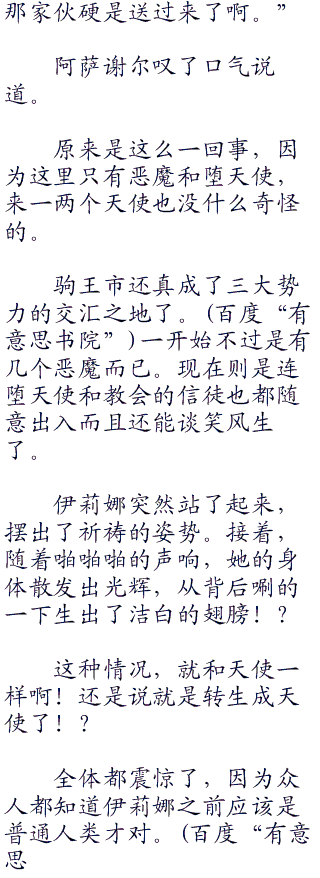 那家伙硬是送过来了啊。”
阿萨谢尔叹了口气说
道。
原来是这么一回事，因
为这里只有恶魔和堕天使，
来一两个天使也没什么奇怪
的。
驹王市还真成了三大势
力的交汇之地了。(百度“有
意思书院”)一开始不过是有
几个恶魔而已。现在则是连
堕天使和教会的信徒也都随
意出入而且还能谈笑风生
了。
伊莉娜突然站了起来，
摆出了祈祷的姿势。接着，
随着啪啪啪的声响，她的身
体散发出光辉，从背后唰的
一下生出了洁白的翅膀！？
这种情况，就和天使一
样啊！还是说就是转生成天
使了！？
全体都震惊了，因为众
人都知道伊莉娜之前应该是
普通人类才对。(百度“有意
思